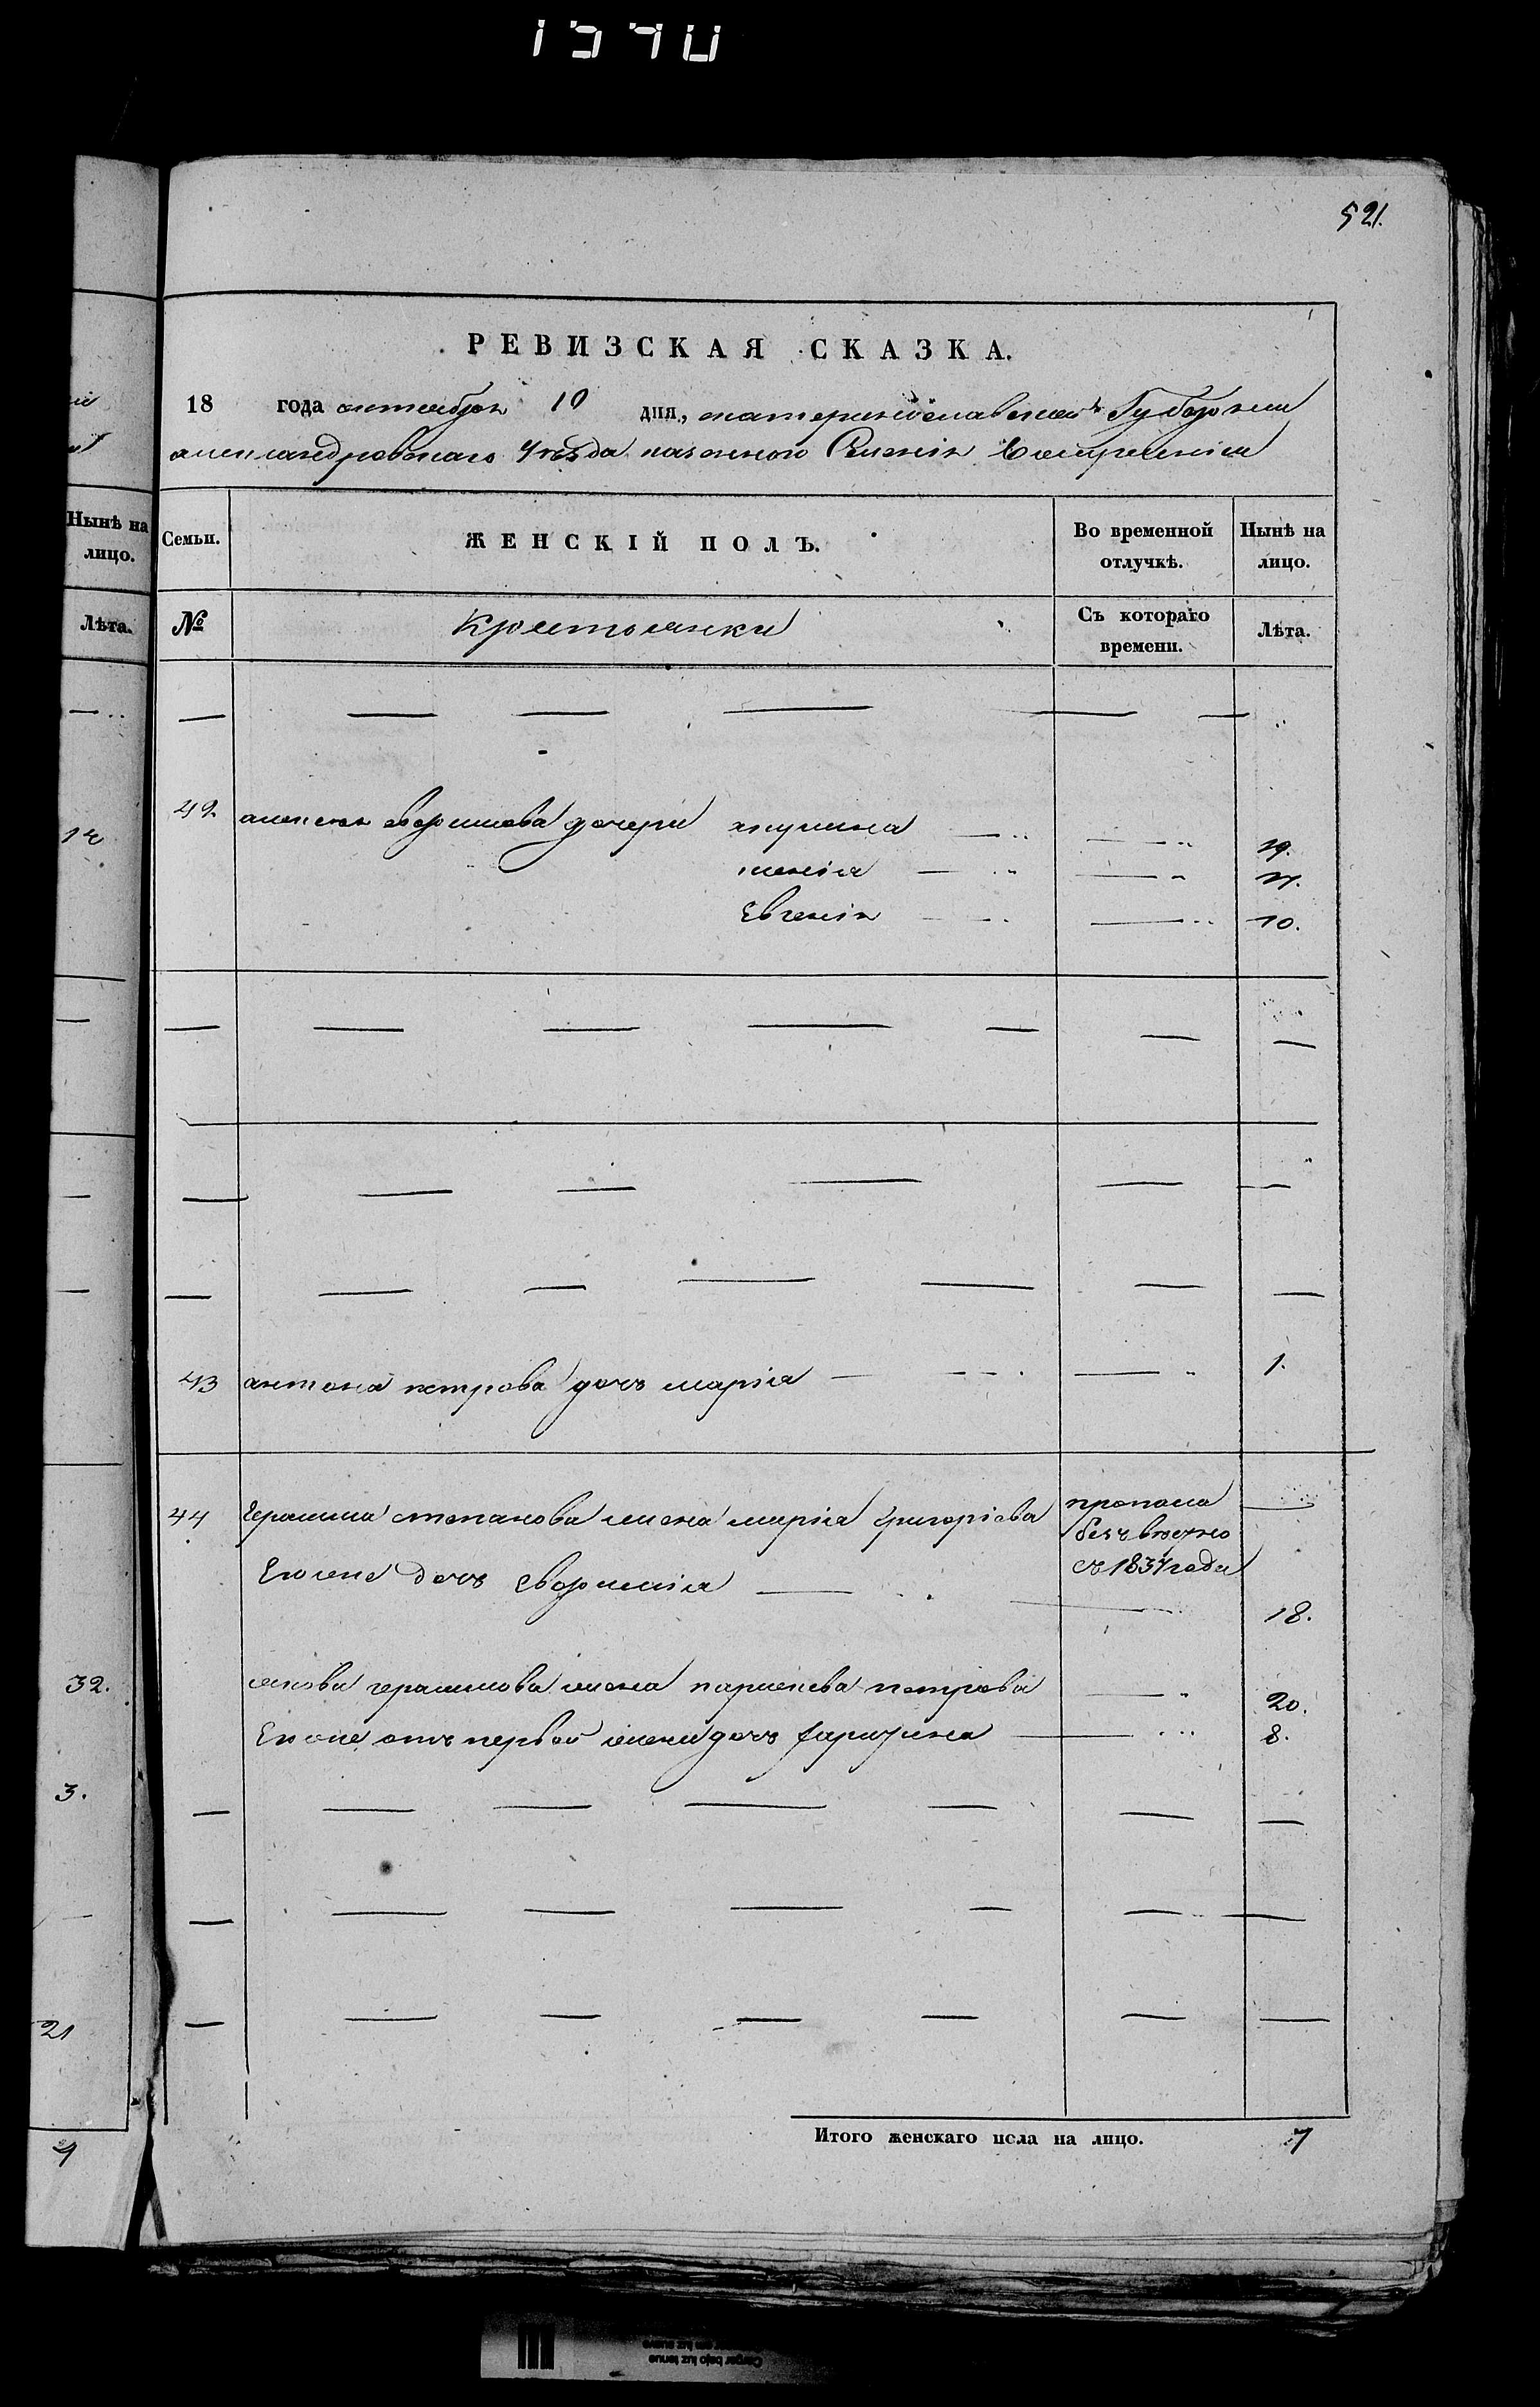 521.
РЕВИЗСКАЯ СКАЗКА.
18 года октября 10 дня, екатеринославской Губернии
александровскаго Уезда казенного Селенія
Нынѣ на лицо.
Семьи.
ЖЕНСКІЙ ПОЛЪ.
Во временной отлучкѣ.
Нынѣ на лицо.
Лѣта.
№
Крестьянки
Съ котораго времени.
Лѣта.
42. алексея дочери акулина 19.
Евгенія 10.
43 антона петрова дочь марія 1.
44 Герасима степанова жена марія григоріева пропала безъ вести
съ 1837 года
Его же дочь 18.
якова герасимова жена парасковья петрова 20.
Его же отъ первой жены дочь 8.
32.
3.
21
Итого женскаго пола на лицо. 7